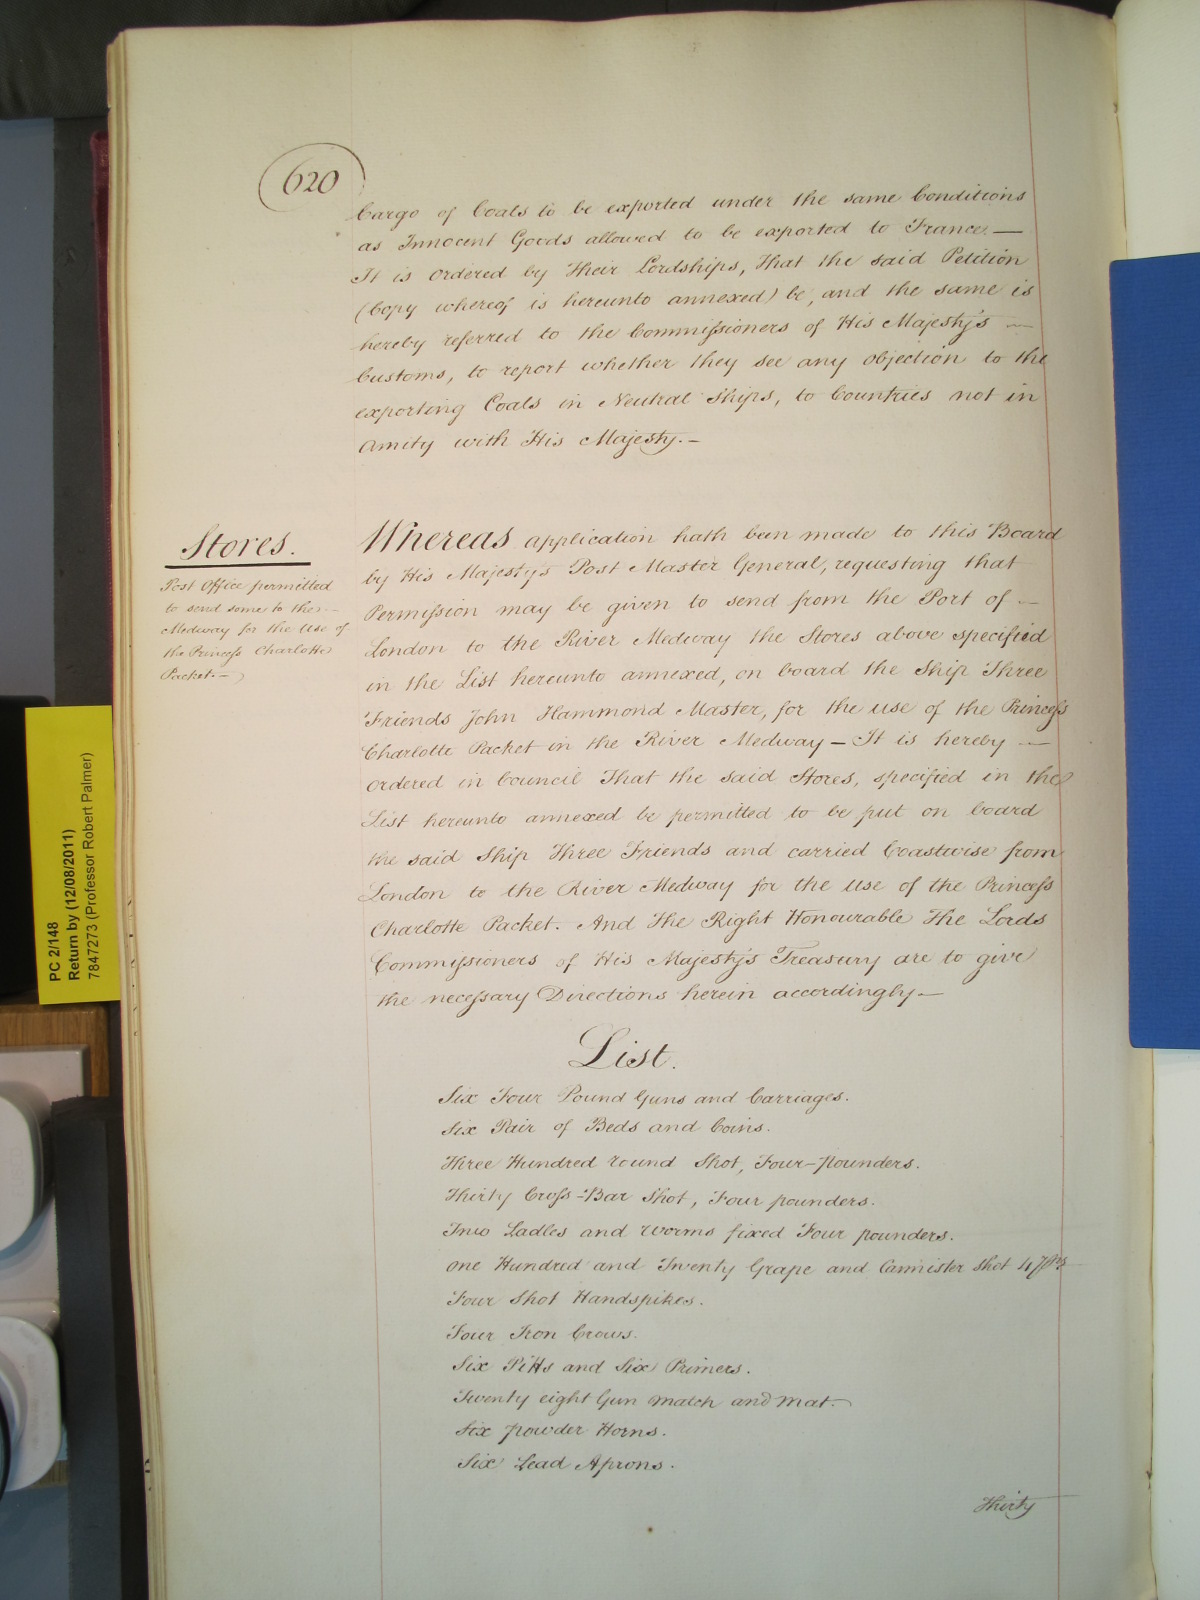 620
Cargo of Coals to be exported under the same Conditions
as Innocent Goods allowed to be exported to France.—
It is ordered by Their Lordships, That the said Petition
(Copy whereof is hereunto annexed) be, and the same is
hereby referred to the Commissioners of His Majesty's —
Customs, to report whether they see any objection to the
exporting Coals in Neutral Ships, to Countries not in
Amity with His Majesty.—
Stores.
Post Office permitted
to send some to the —
Medway for the Use of
the Princess Charlotte
Packet.—
Whereas application hath been made to this Board
by His Majestys Post Master General, requesting that
Permission may be given to send from the Port of —
London to the River Medway the Stores above specified
in the List hereunto annexed, on board the Ship Three
Friends John Hammond Master, for the use of the Princess
Charlotte Packet in the River Medway — It is hereby —
ordered in Council That the said Stores, specified in the
List hereunto annexed be permitted to be put on board
the said Ship Three Friends and carried Coastwise from
London to the River Medway for the Use of the Princess
Charlotte Packet. And The Right Honourable The Lords
Commissioners of His Majesty's Treasury are to give
the necessary Directions herein accordingly—
List.
Six Four Pound Guns and Carriages.
Six Pair of Beds and Coins.
Three Hundred round Shot, Four-pounders.
Thirty Cross-Bar Shot, Four pounders.
Two Ladles and worms fixed Four pounders.
one Hundred and Twenty Grape and Cannister Shot 4
Four Shot Handspikes.
Four Iron Crows.
Six and Six Primers.
Twenty eight Gun match and mat.—
Six powder Horns.
Six Lead Aprons.
Thirty
PC 2/148
Return by (12/08/2011)
7847273 (Professor Robert Palmer)